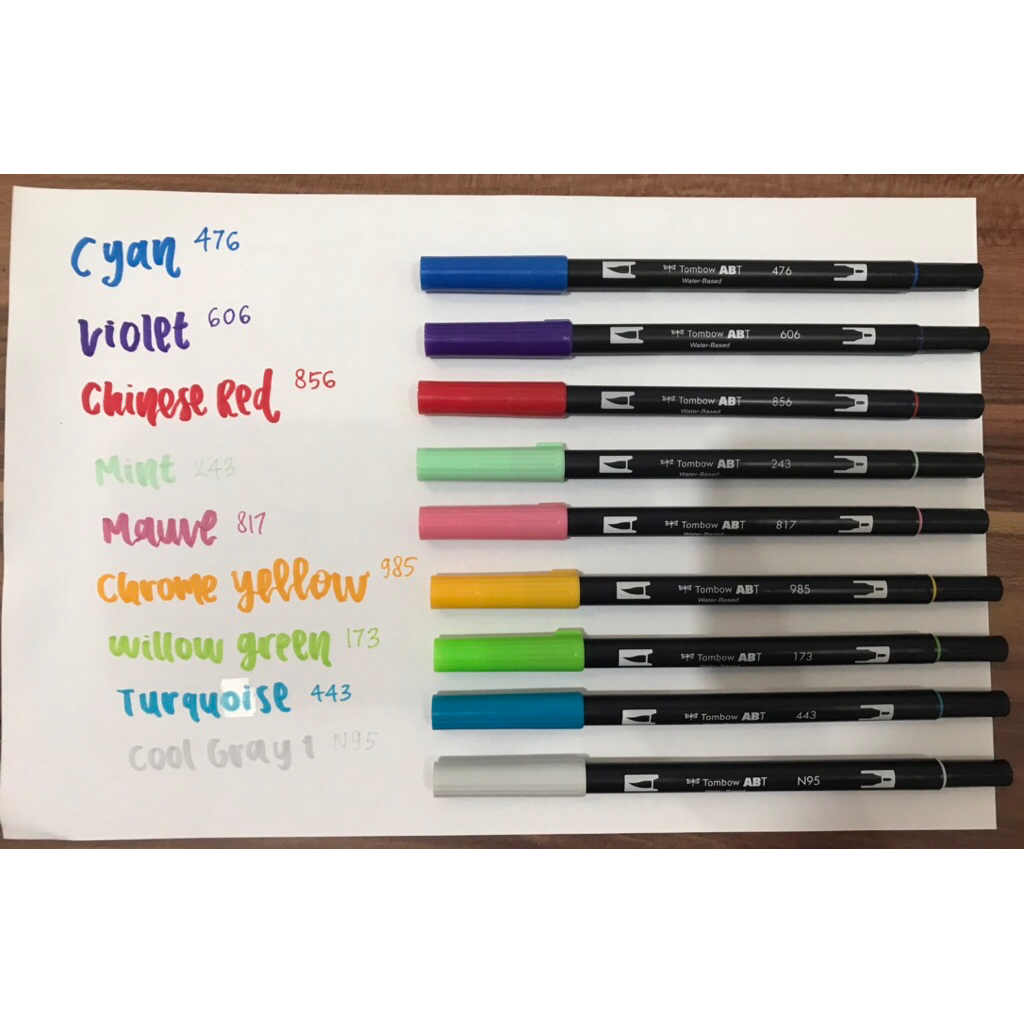 Cyan 476
Tombow ABT 476
Water-Based
Violet 606
Tombow ABT 606
Water-Based
Chinese Red 856
Tombow ABT 856
Water-Based
Mint 243
Tombow ABT 243
Water-Based
Mauve 817
Tombow ABT 817
Chrome yellow 985
Tombow ABT 985
Water-Based
Willow green 173
Tombow ABT 173
Turquoise 443
Tombow ABT 443
Cool Gray 1 N95
Tombow ABT N95
Water-Based